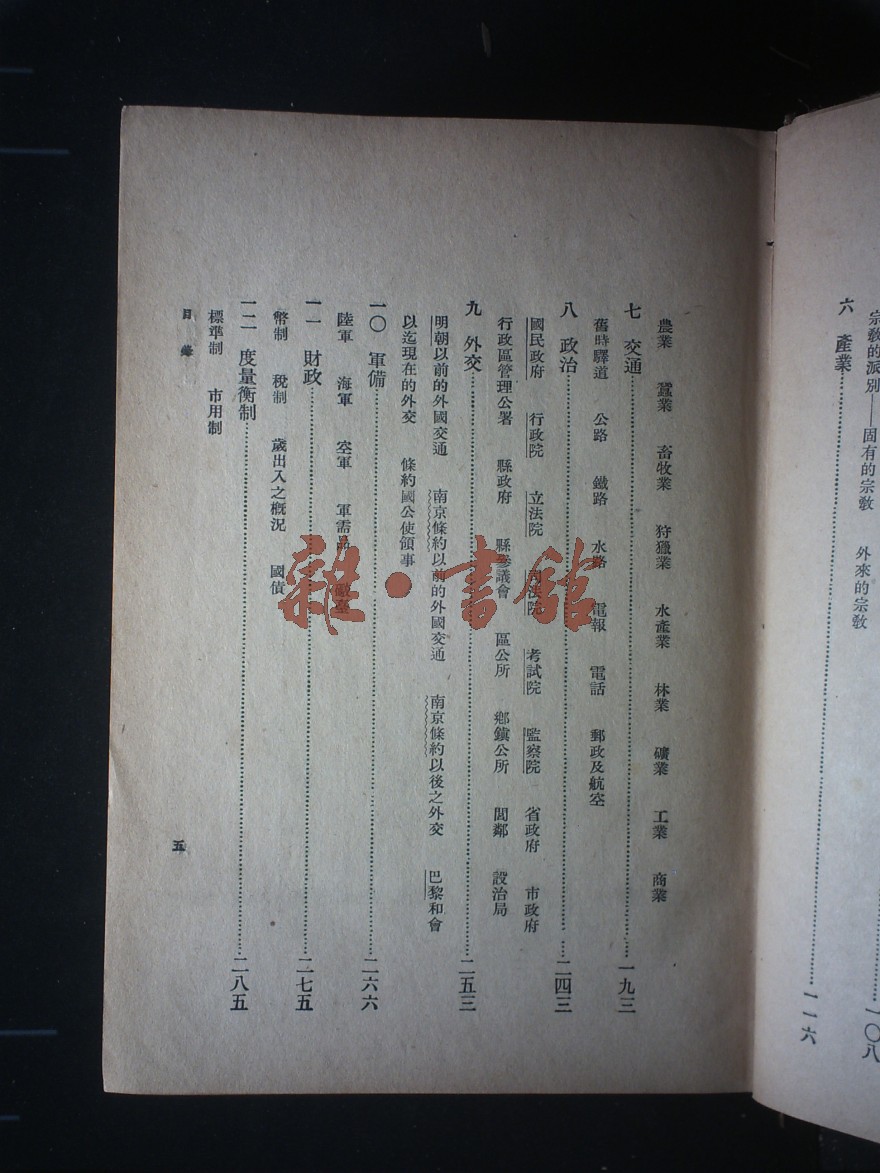 宗教的派別——固有的宗教　外來的宗教……一〇八
六　產業……一一六
農業　蠶業　畜牧業　狩獵業　水產業　林業　礦業　工業　商業
七　交通……一九三
舊時驛道　公路　鐵路　水路　電報　電話　郵政及航空
八　政治……二四三
國民政府　行政院　立法院　司法院　考試院　監察院　省政府　市政府
行政區管理公署　縣政府　縣參議會　區公所　鄉鎮公所　閭鄰　設治局
九　外交……二五三
明朝以前的外國交通　南京條約以前的外國交通　南京條約以後之外交　巴黎和會
以迄現在的外交　條約國公使領事
一〇　軍備……二六六
陸軍　海軍　空軍　軍需品　礮臺
一一　財政……二七五
幣制　稅制　歲出入之概況　國債
一二　度量衡制……二八五
標準制　市用制
目錄
五
雜·書館